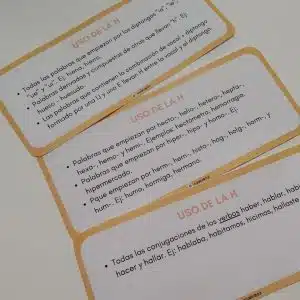 USO DE LA H
• Todas las palabras que empiezan por los diptongos "ia", "ie",
"ue" y "ui". Ej: hiena, hierro.
• Palabras derivadas y compuestas de otras que lleven "h". Ej:
hueco
• Las palabras que contienen la combinación de vocal + diptongo
formado por una U y una E llevan H entre la vocal y el diptongo.
USO DE LA H
• Palabras que empiezan por hecto-, helio-, hetero-, hepta-,
hexa-, hemo- y hemi-. Ejemplos: hectómetro, hemorragia.
• Palabras que empiezan por hiper-, hipo- y homo-. Ej:
hipermercado.
• Que empiezan por herm-, hern-, histo-, hog-, holg-, horm- y
hum-. Ej: humo, hormiga, hermano.
USO DE LA H
• Todas las conjugaciones de los verbos haber, hablar,
hacer y hallar. Ej: hablaba, habitamos, hicimos, hallaste